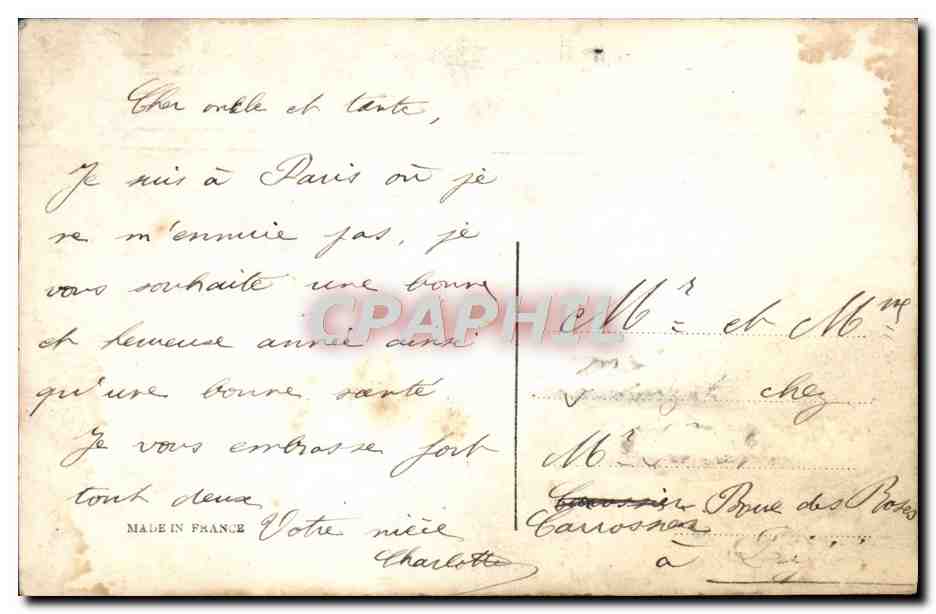 Cher oncle et tante,
Je suis à Paris où je
ne m'ennuie pas, je
vous souhaite une bonne
et heureuse année ainsi
qu'une bonne santé
Je vous embrasse fort
tout deux
Votre nièce
Charlotte
MADE IN FRANCE
CPAPHIL
Mr et Mme
chez
Mr
Carrossier Rue des Roses
Carrossier
à